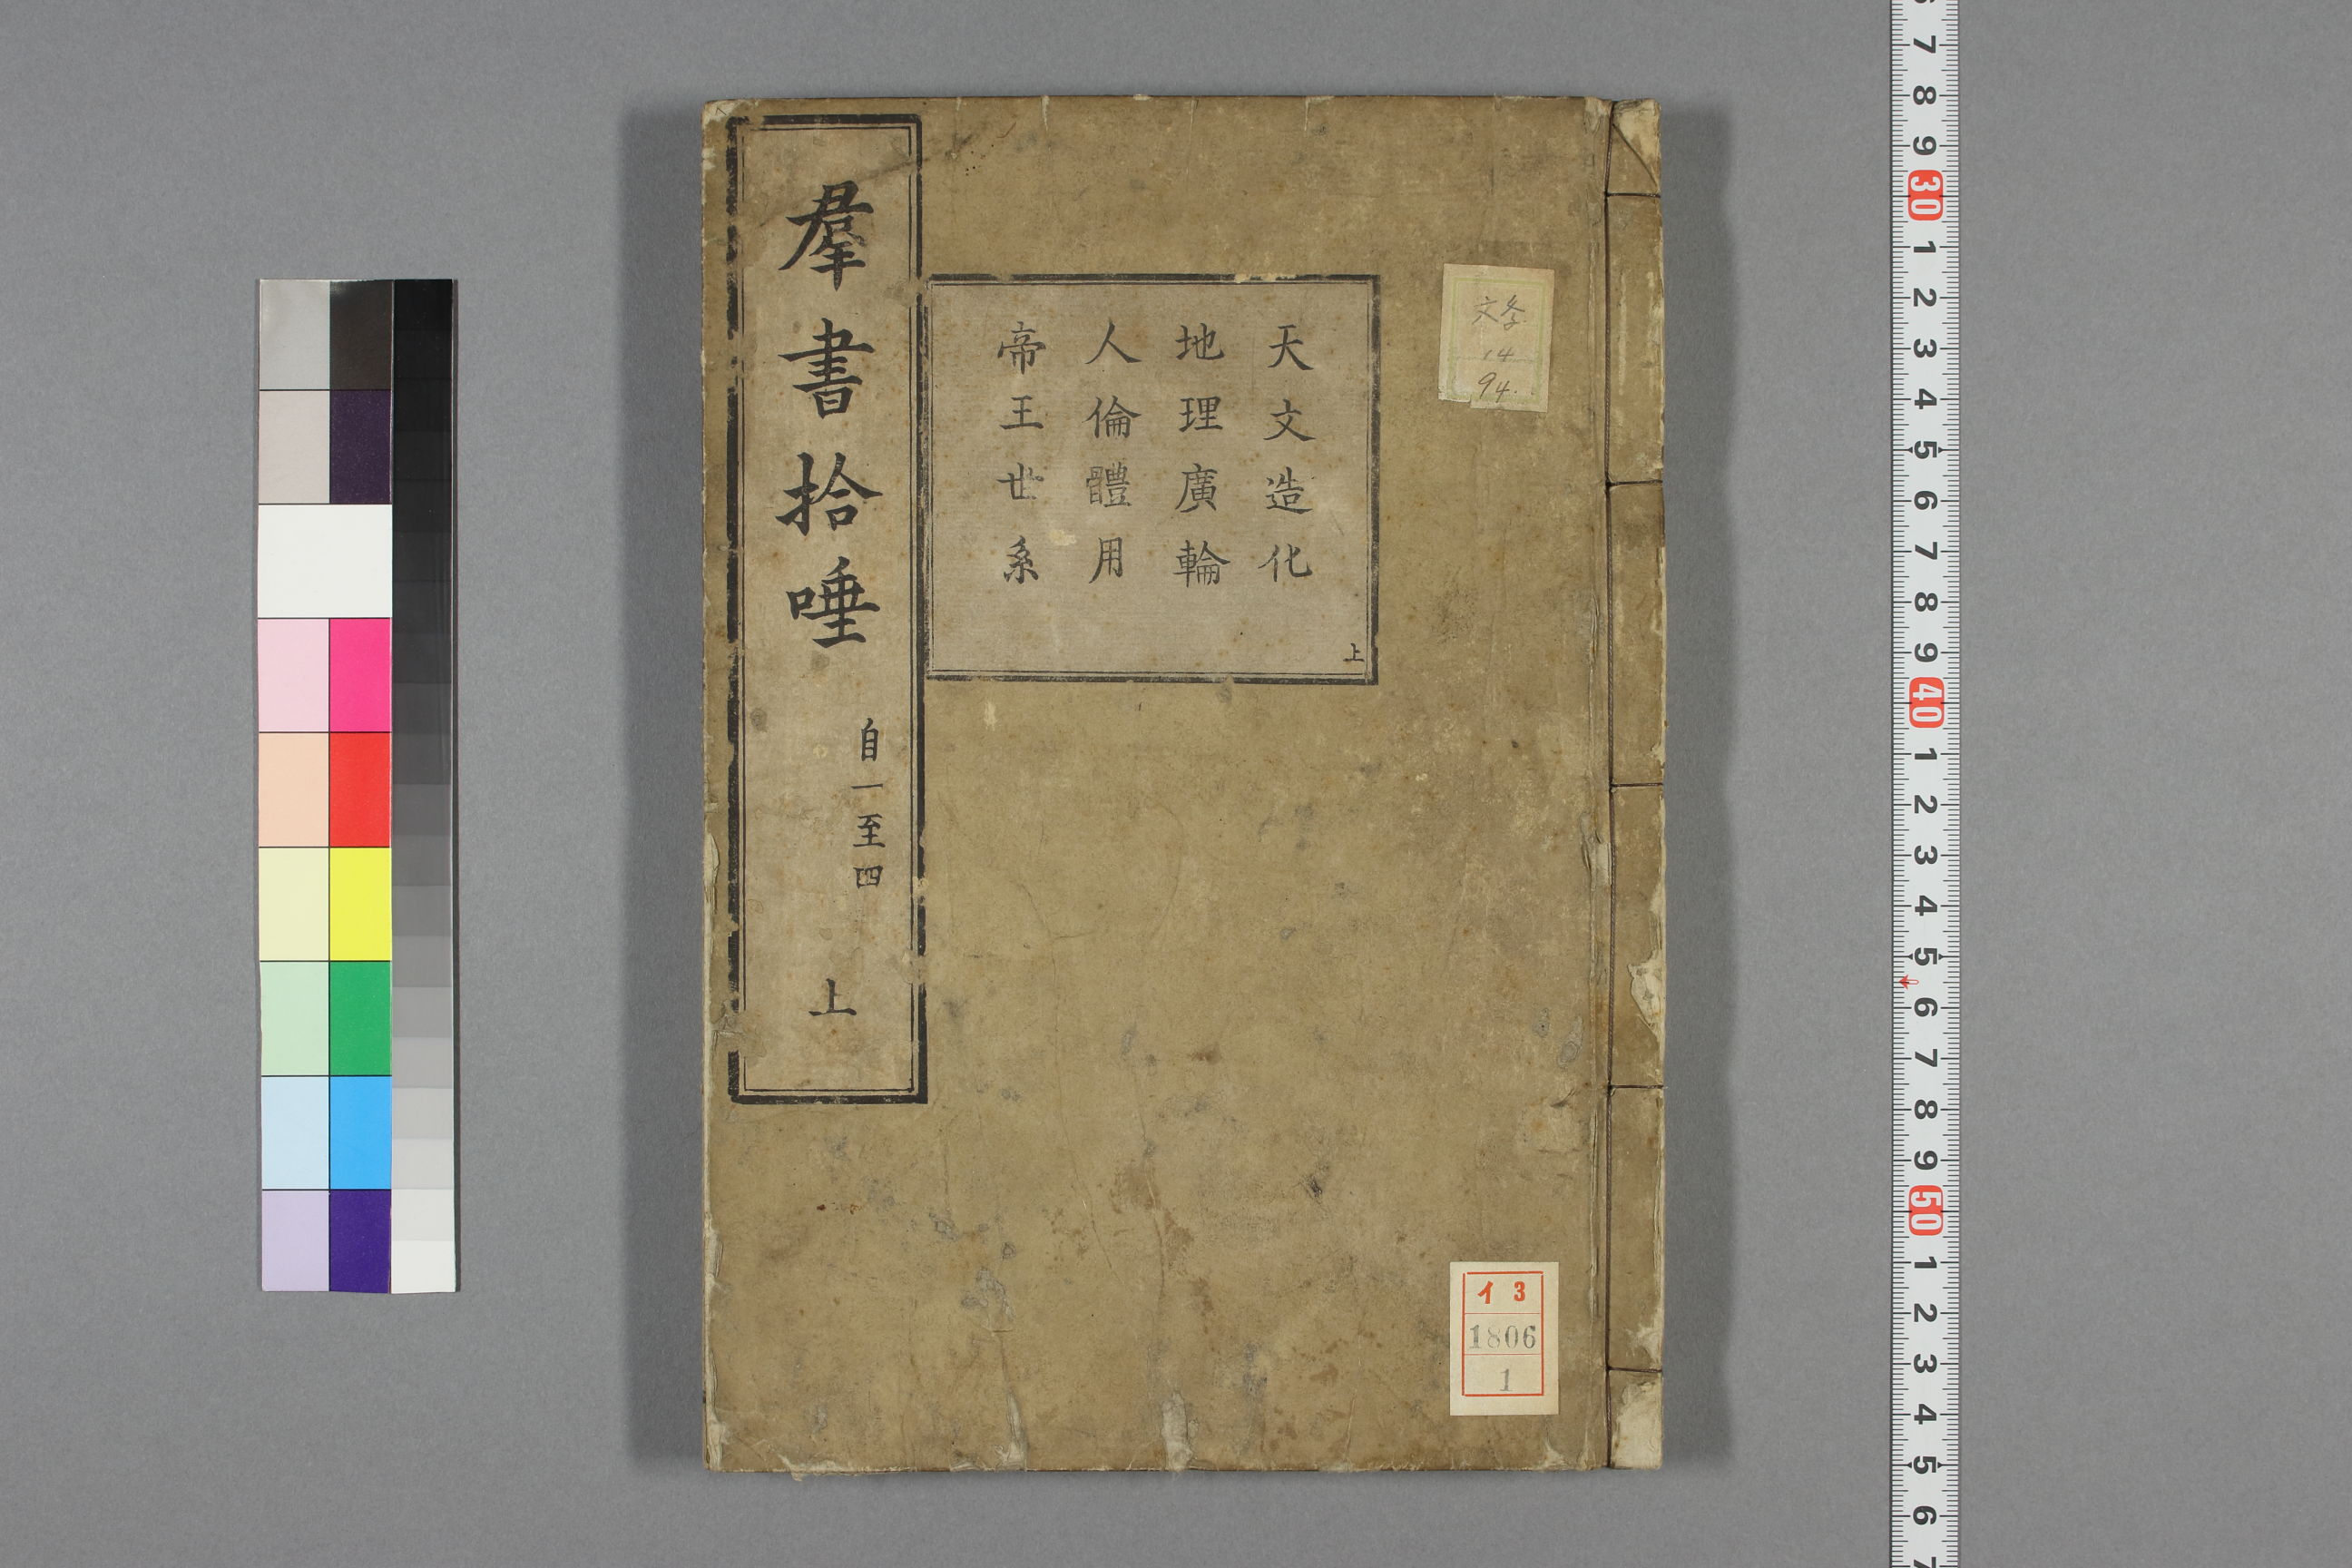 羣書拾唾 自一至四 上
天文造化
地理廣輪
人倫體用
帝王世系
上
14
94.
イ 3
1806
1
7
8
9
30
1
2
3
4
5
6
7
8
9
40
1
2
3
4
5
6
7
8
9
50
1
2
3
4
5
6
7